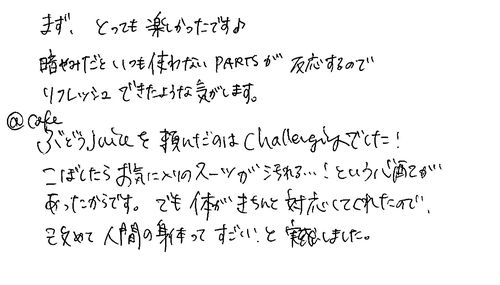 まず、とっても楽しかったです♪
暗やみだといつも使わないPARTSが反応するので
リフレッシュできたような気がします。
@cafe
ぶどうjuiceを頼んだのはchallengingでした!
こぼしたらお気に入りのスーツが汚れる…!という心配が
あったからです。でも体がきちんと対応してくれたので、
改めて人間の身体ってすごい!と実感しました。